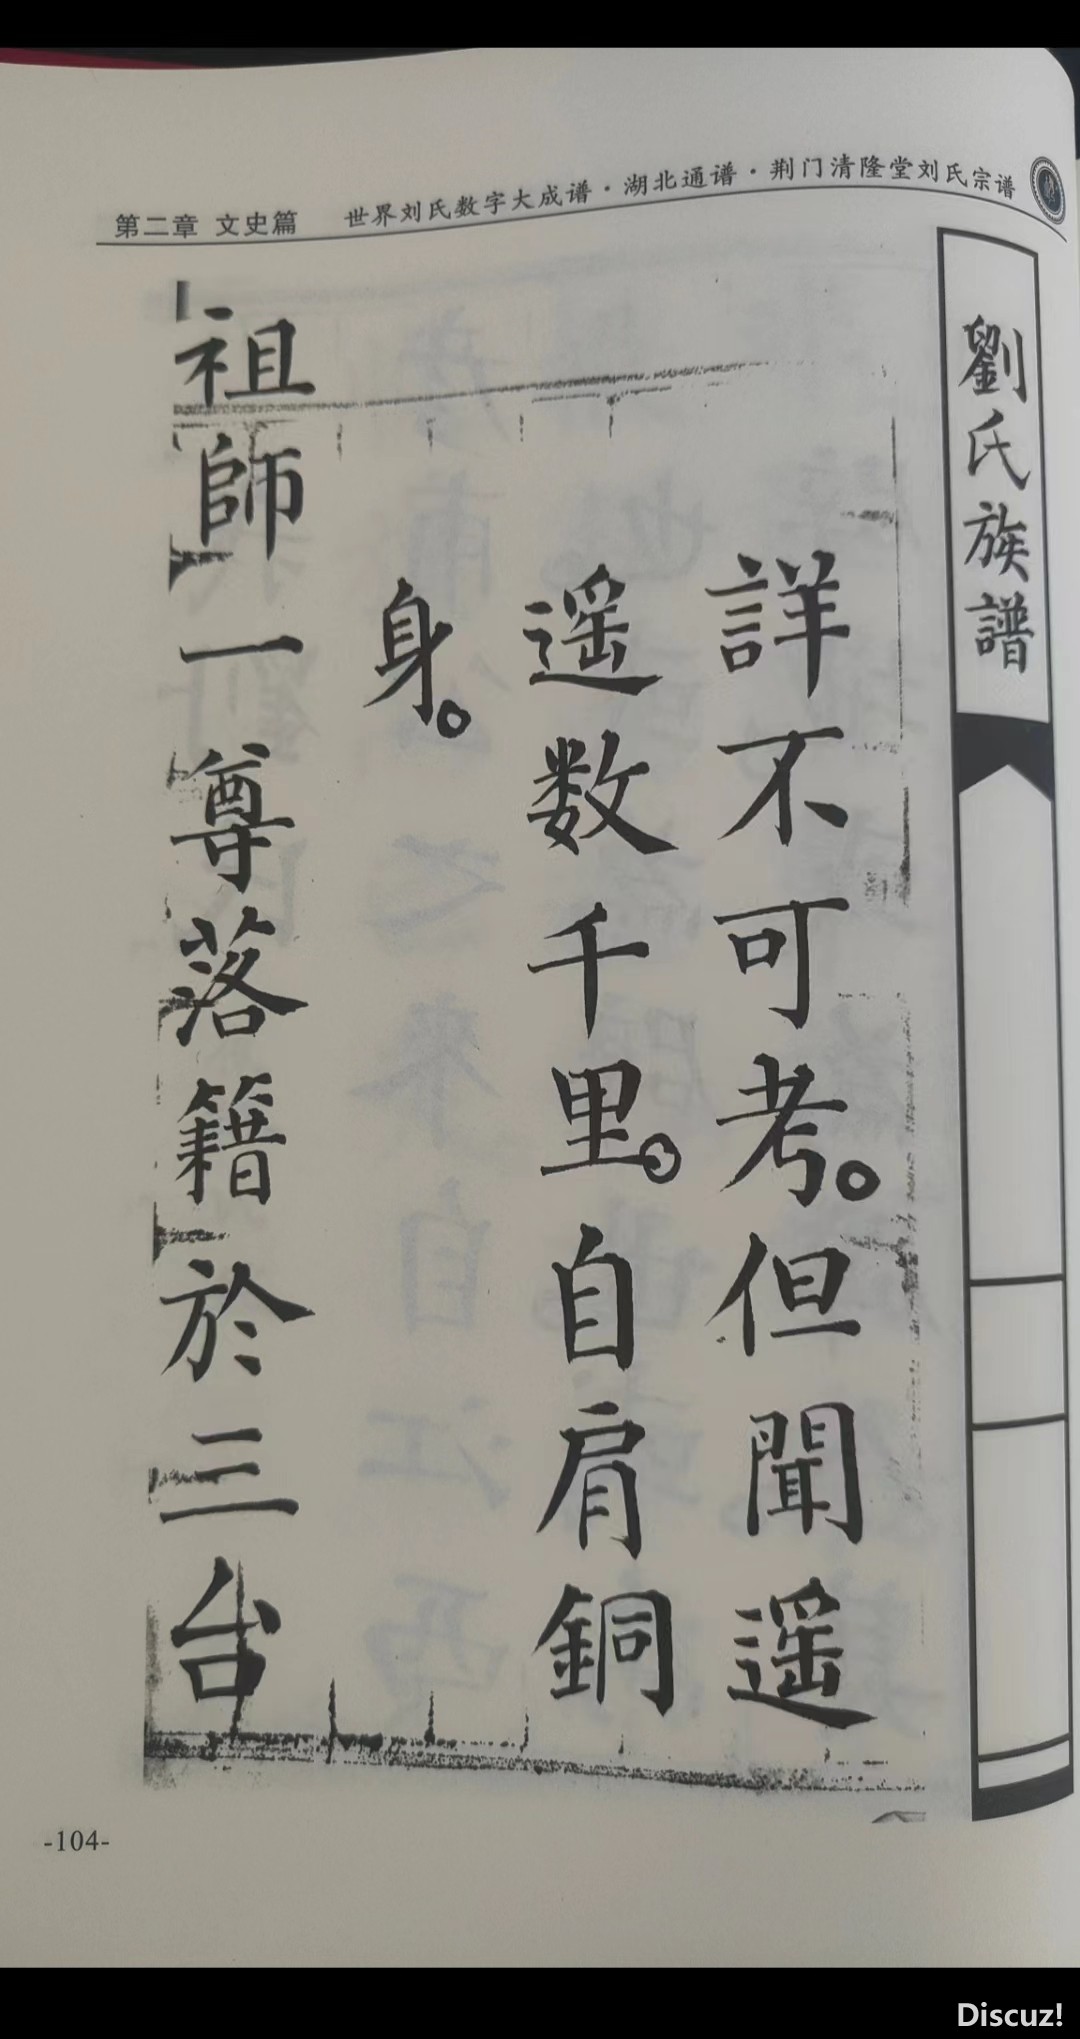 第二章 文史篇 世界刘氏数字大成谱·湖北通谱·荆门清隆堂刘氏宗谱
劉氏族譜
詳不可考。但聞遥
遥数千里。自肩銅
身。
祖師一尊落籍於三台
-104-
Discuz!